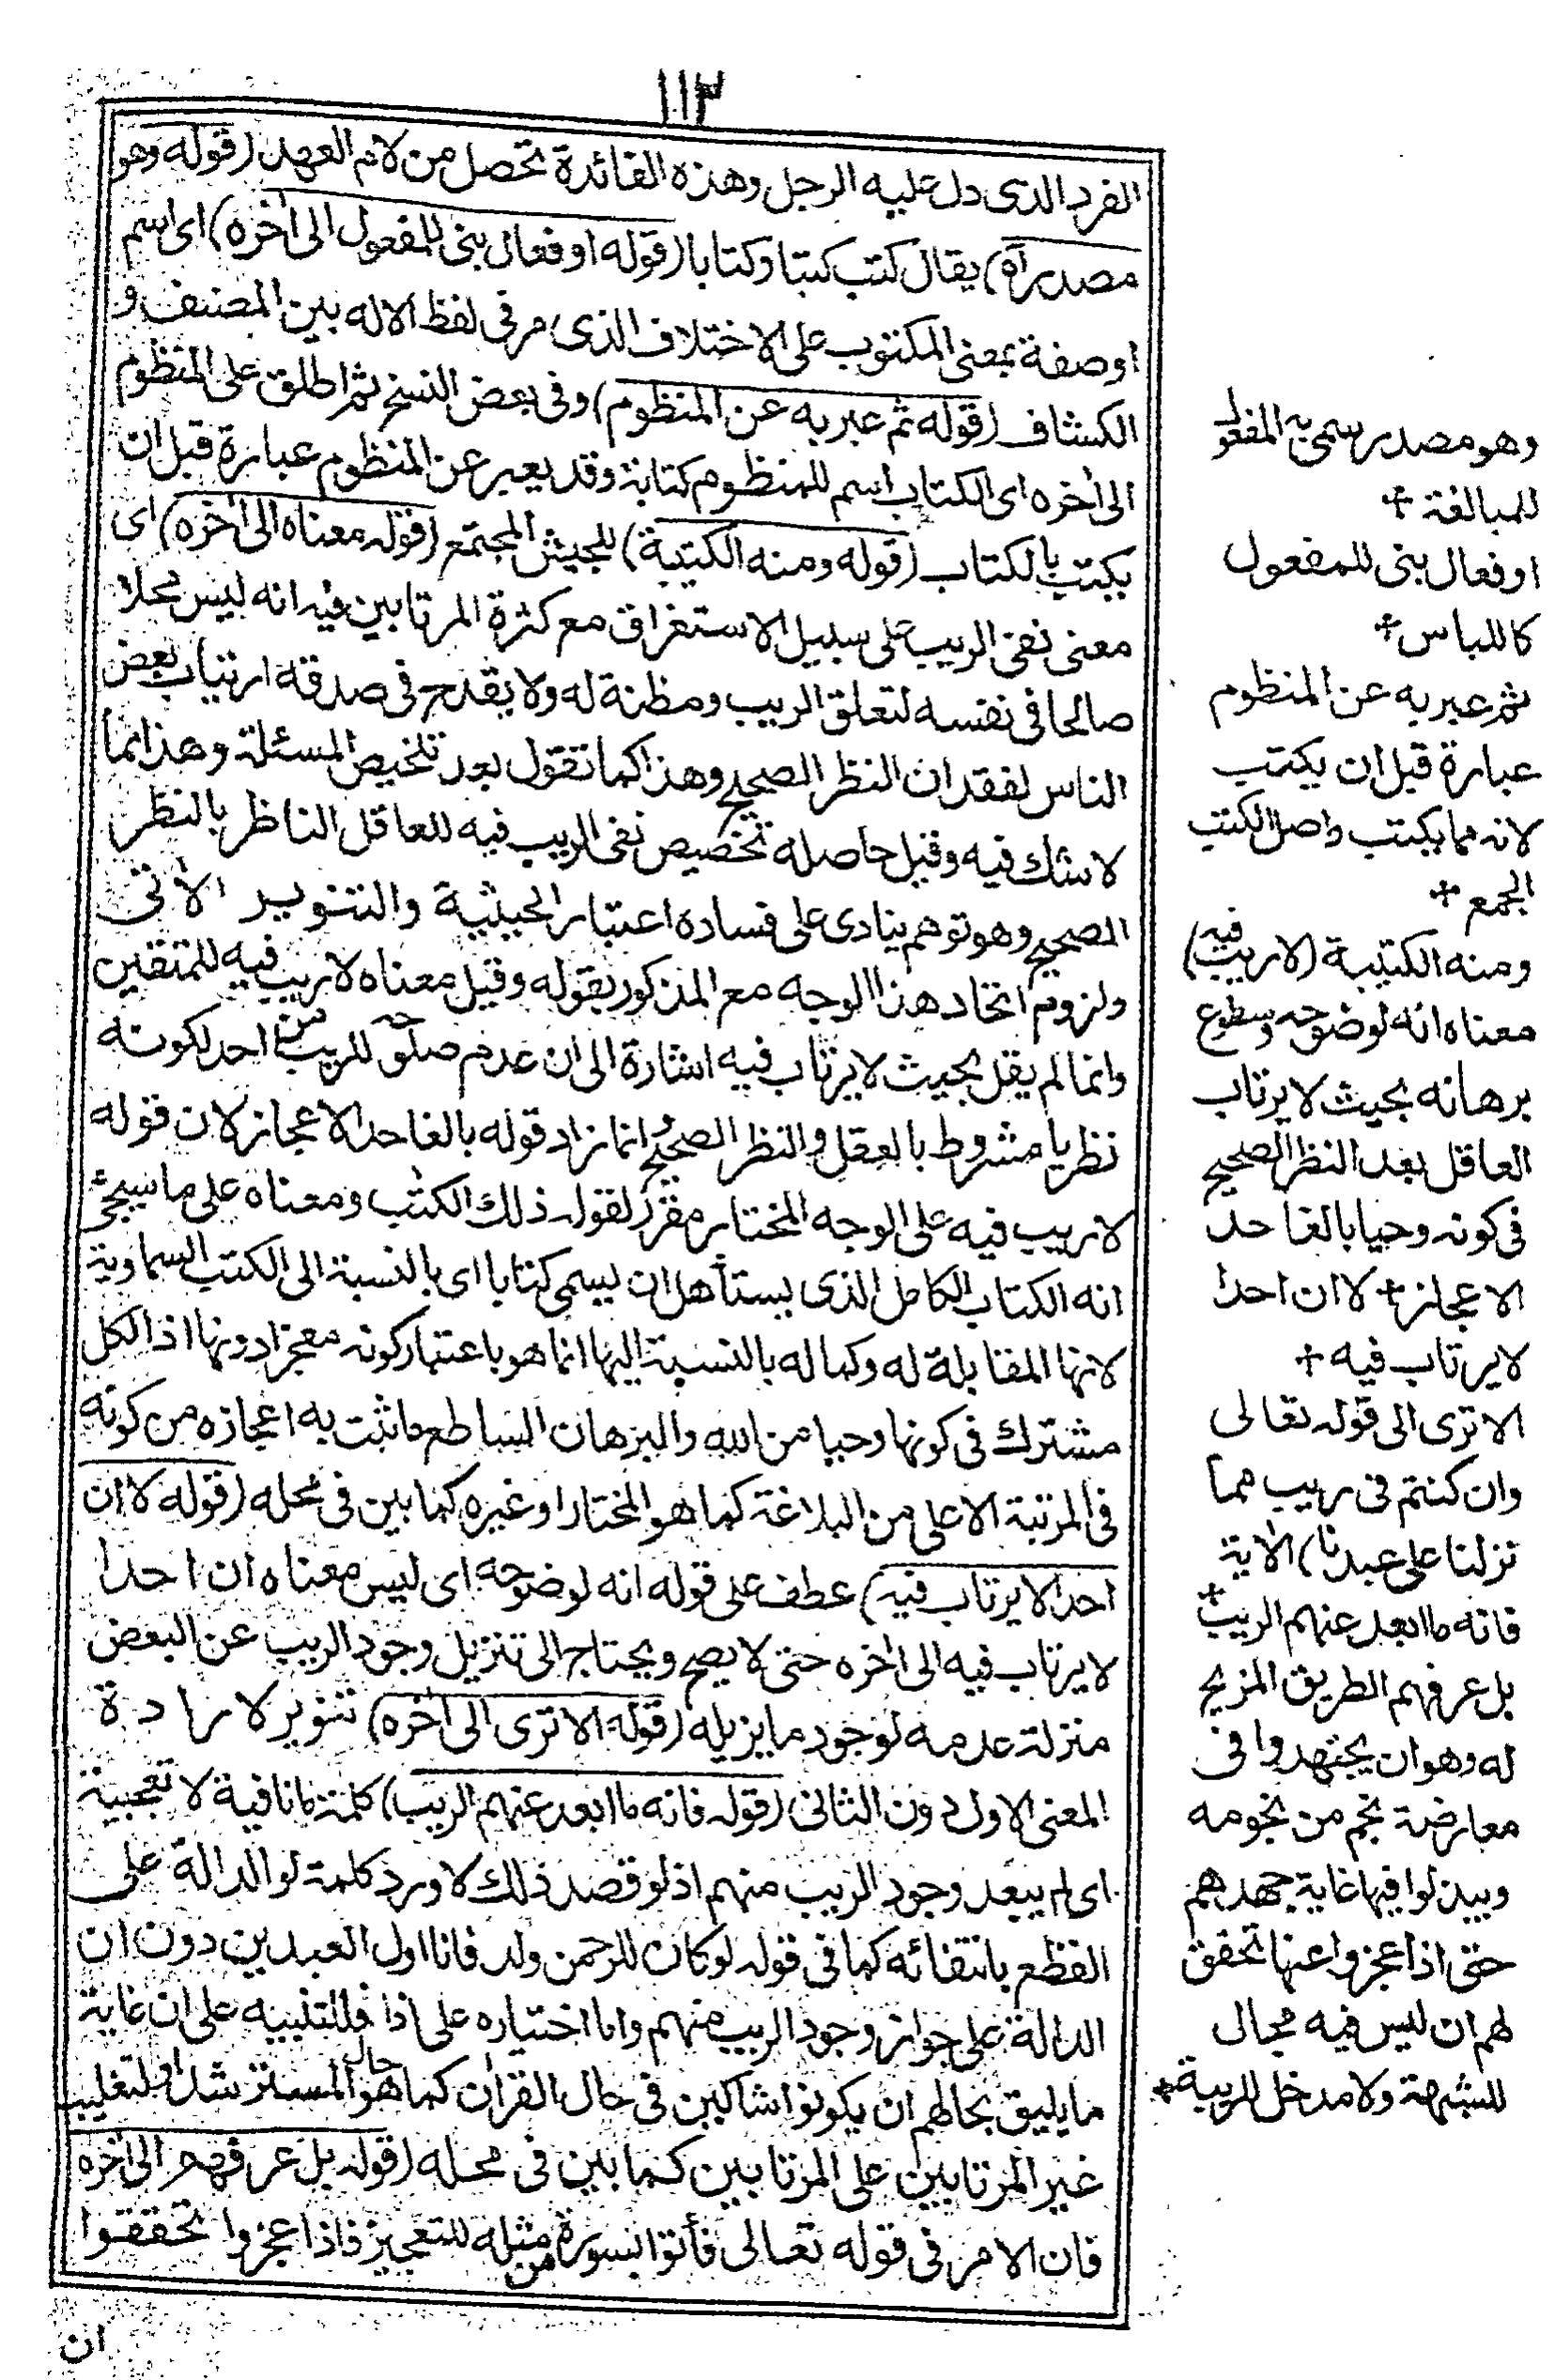 ١١٣
الفرد الذى دل عليه الرجل وهذه الفائدة تحصل من لام العهد (قوله وهو
مصدر آه) يقال كتب كتبا وكتابا (قوله او فعال بنى للمفعول الى اخره) اى اسم
او صفة بمعنى المكتوب على الاختلاف الذى مر فى لفظ الاله بين المصنف و
الكشاف (قوله ثم عبر به عن المنظوم) وفى بعض النسخ ثم اطلق على المنظوم
الى اخره اى الكتاب اسم للمنظوم كتابة وقد يعبر عن المنظوم عبارة قبل ان
يكتب بالكتاب (قوله ومنه الكتيبة) للجيش المجتمع (قوله معناه الى اخره) اى
معنى نفى الريب على سبيل الاستغراق مع كثرة المرتابين فيه انه ليس محلا
صالحا فى نفسه لتعلق الريب ومظنة له ولا يقدح فى صدقه ارتياب بعض
الناس لفقدان النظر الصحيح وهذا كما تقول بعد تلخيص المسئلة وهذا مما
لا شك فيه وقيل حاصله تخصيص نفى الريب فيه للعاقل الناظر بالنظر
الصحيح وهو توهم ينادى على فساده اعتبار الحيثية والتنوير الاتى
ولزوم اتحاد هذا الوجه مع المذكور بقوله وقيل معناه لا ريب فيه للمتقين
وانما لم يقل بحيث لا يرتاب فيه اشارة الى ان عدم صلوحه للريب من احد لكونه
نظريا مشروط بالعقل والنظر الصحيح انما زاد قوله بالغا حد الاعجاز لان قوله
لا ريب فيه على الوجه المختار مقرر لقوله ذلك الكتب ومعناه على ما سيجئ
انه الكتاب الكامل الذى يستأهل ان يسمى كتابا اى بالنسبة الى الكتب السماوية
لانها المقابلة له وكماله بالنسبة اليها انما هو باعتبار كونه معجزا دونها اذ الكل
مشترك فى كونها وحيا من الله والبرهان الساطع ما ثبت به اعجازه من كونه
فى المرتبة الاعلى من البلاغة كما هو المختار او غيره كما بين فى محله (قوله لا ان
احدا لا يرتاب فيه) عطف على قوله انه لوضوحه اى ليس معناه ان احدا
لا يرتاب فيه الى اخره حتى لا يصح ويحتاج الى تنزيل وجود الريب عن البعض
منزلة عدمه لوجود ما يزيله (قوله الا ترى الى اخره) تنوير لارادة
المعنى الاول دون الثانى (قوله فانه ما ابعد عنهم الريب) كلمة ما نافية لا تعجبية
اى لم يبعد وجود الريب منهم اذ لو قصد ذلك لاورد كلمة لو الدالة على
القطع بانتفائه كما فى قوله لو كان للرحمن ولد فانا اول العبدين دون ان
الدالة على جواز وجود الريب منهم واما اختياره على اذا فللتنبيه على ان غاية
ما يليق بحالهم ان يكونوا شاكين فى حال القران كما هو حال المسترشد او لتغليب
غير المرتابين على المرتابين كما بين فى محله (قوله بل عرفهم الى اخره
فان الامر فى قوله تعالى فأتوا بسورة من مثله للتعجيز فاذا عجزوا تحققوا
ان
وهو مصدر سمى به المفعول
للمبالغة +
او فعال بنى للمفعول
كاللباس +
ثم عبر به عن المنظوم
عبارة قبل ان يكتب
لانه مما يكتب واصل الكتب
الجمع +
ومنه الكتيبة (لا ريب فيه)
معناه انه لوضوحه وسطوع
برهانه بحيث لا يرتاب
العاقل بعد النظر الصحيح
فى كونه وحيا بالغا حد
الاعجاز + لا ان احدا
لا يرتاب فيه +
الا ترى الى قوله تعالى
وان كنتم فى ريب مما
نزلنا على عبدنا) الاية
فانه ما ابعد عنهم الريب +
بل عرفهم الطريق المزيح
له وهو ان يجتهدوا فى
معارضة نجم من نجومه
ويبذلوا فيها غاية جهدهم
حتى اذا عجزوا عنها تحقق
لهم ان ليس فيه مجال
للشبهة ولا مدخل للريبة +